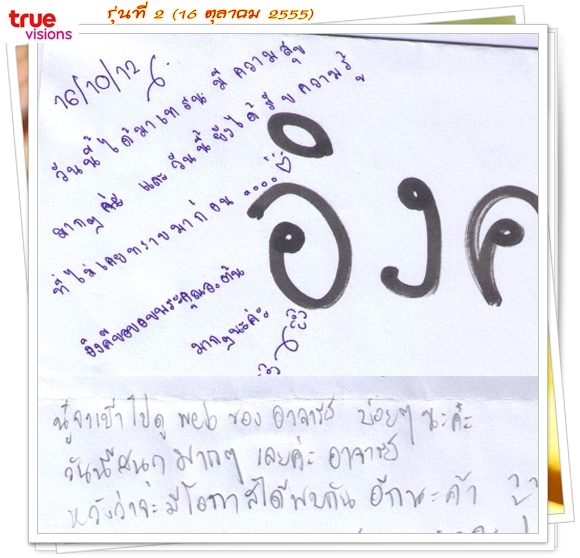 true
visions
รุ่นที่ 2 (16 ตุลาคม 2555)
16/10/12
วันนี้ได้มาเทรน มีความสุข
มากๆ ค่ะ และวันนี้ยังได้รับความรู้
ที่ไม่เคยทราบมาก่อน....
อิงค์ขอขอบพระคุณอ.ต้น
มากๆนะค่ะ
อิงค
นู๋จาเข้าไปดู ของ อาจารย์ บ่อยๆ นะค่ะ
วันนี้สนุก มากๆ เลยค่ะ อาจารย์
หวังว่าจะมีโอกาสได้พบกัน อีกนะค้า